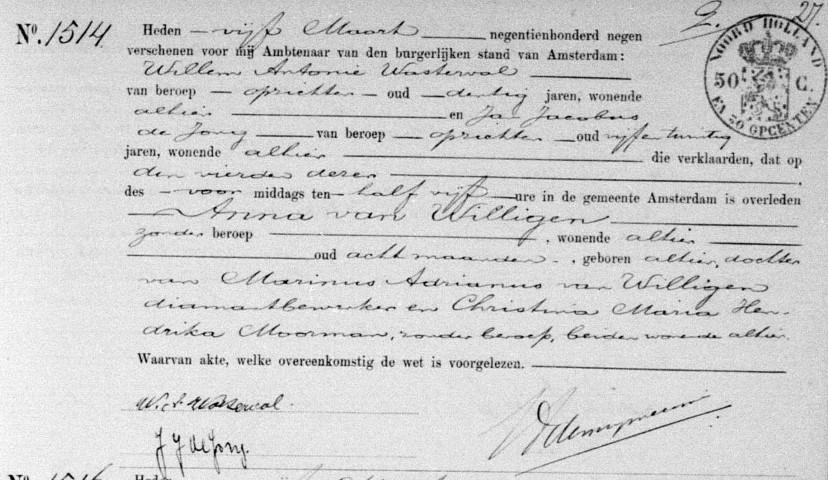 2. 27.
NOORD HOLLAND
50 C.
EN 50 OPCENTEN
No. 1514 Heden - vijf Maart negentienhonderd negen
verschenen voor mij Ambtenaar van den burgerlijken stand van Amsterdam:
Willem Antonie Wasterval
van beroep - opzichter - oud - dertig jaren, wonende
alhier en Jan Jacobus
de Jong van beroep - opzichter oud vijfentwintig
jaren, wonende alhier die verklaarden, dat op
den vierde dezer,
des - voor middags ten - half vijf ure in de gemeente Amsterdam is overleden
Anna van Willigen
zonder beroep, wonende alhier
oud acht maanden, geboren alhier, dochter
van Marinus Adrianus van Willigen
diamantbewerker en Christina Maria Hen-
drika Moorman, zonder beroep, beiden wonende alhier.
Waarvan akte, welke overeenkomstig de wet is voorgelezen.
W. A. Wasterval.
J J de Jong.
No. Heden